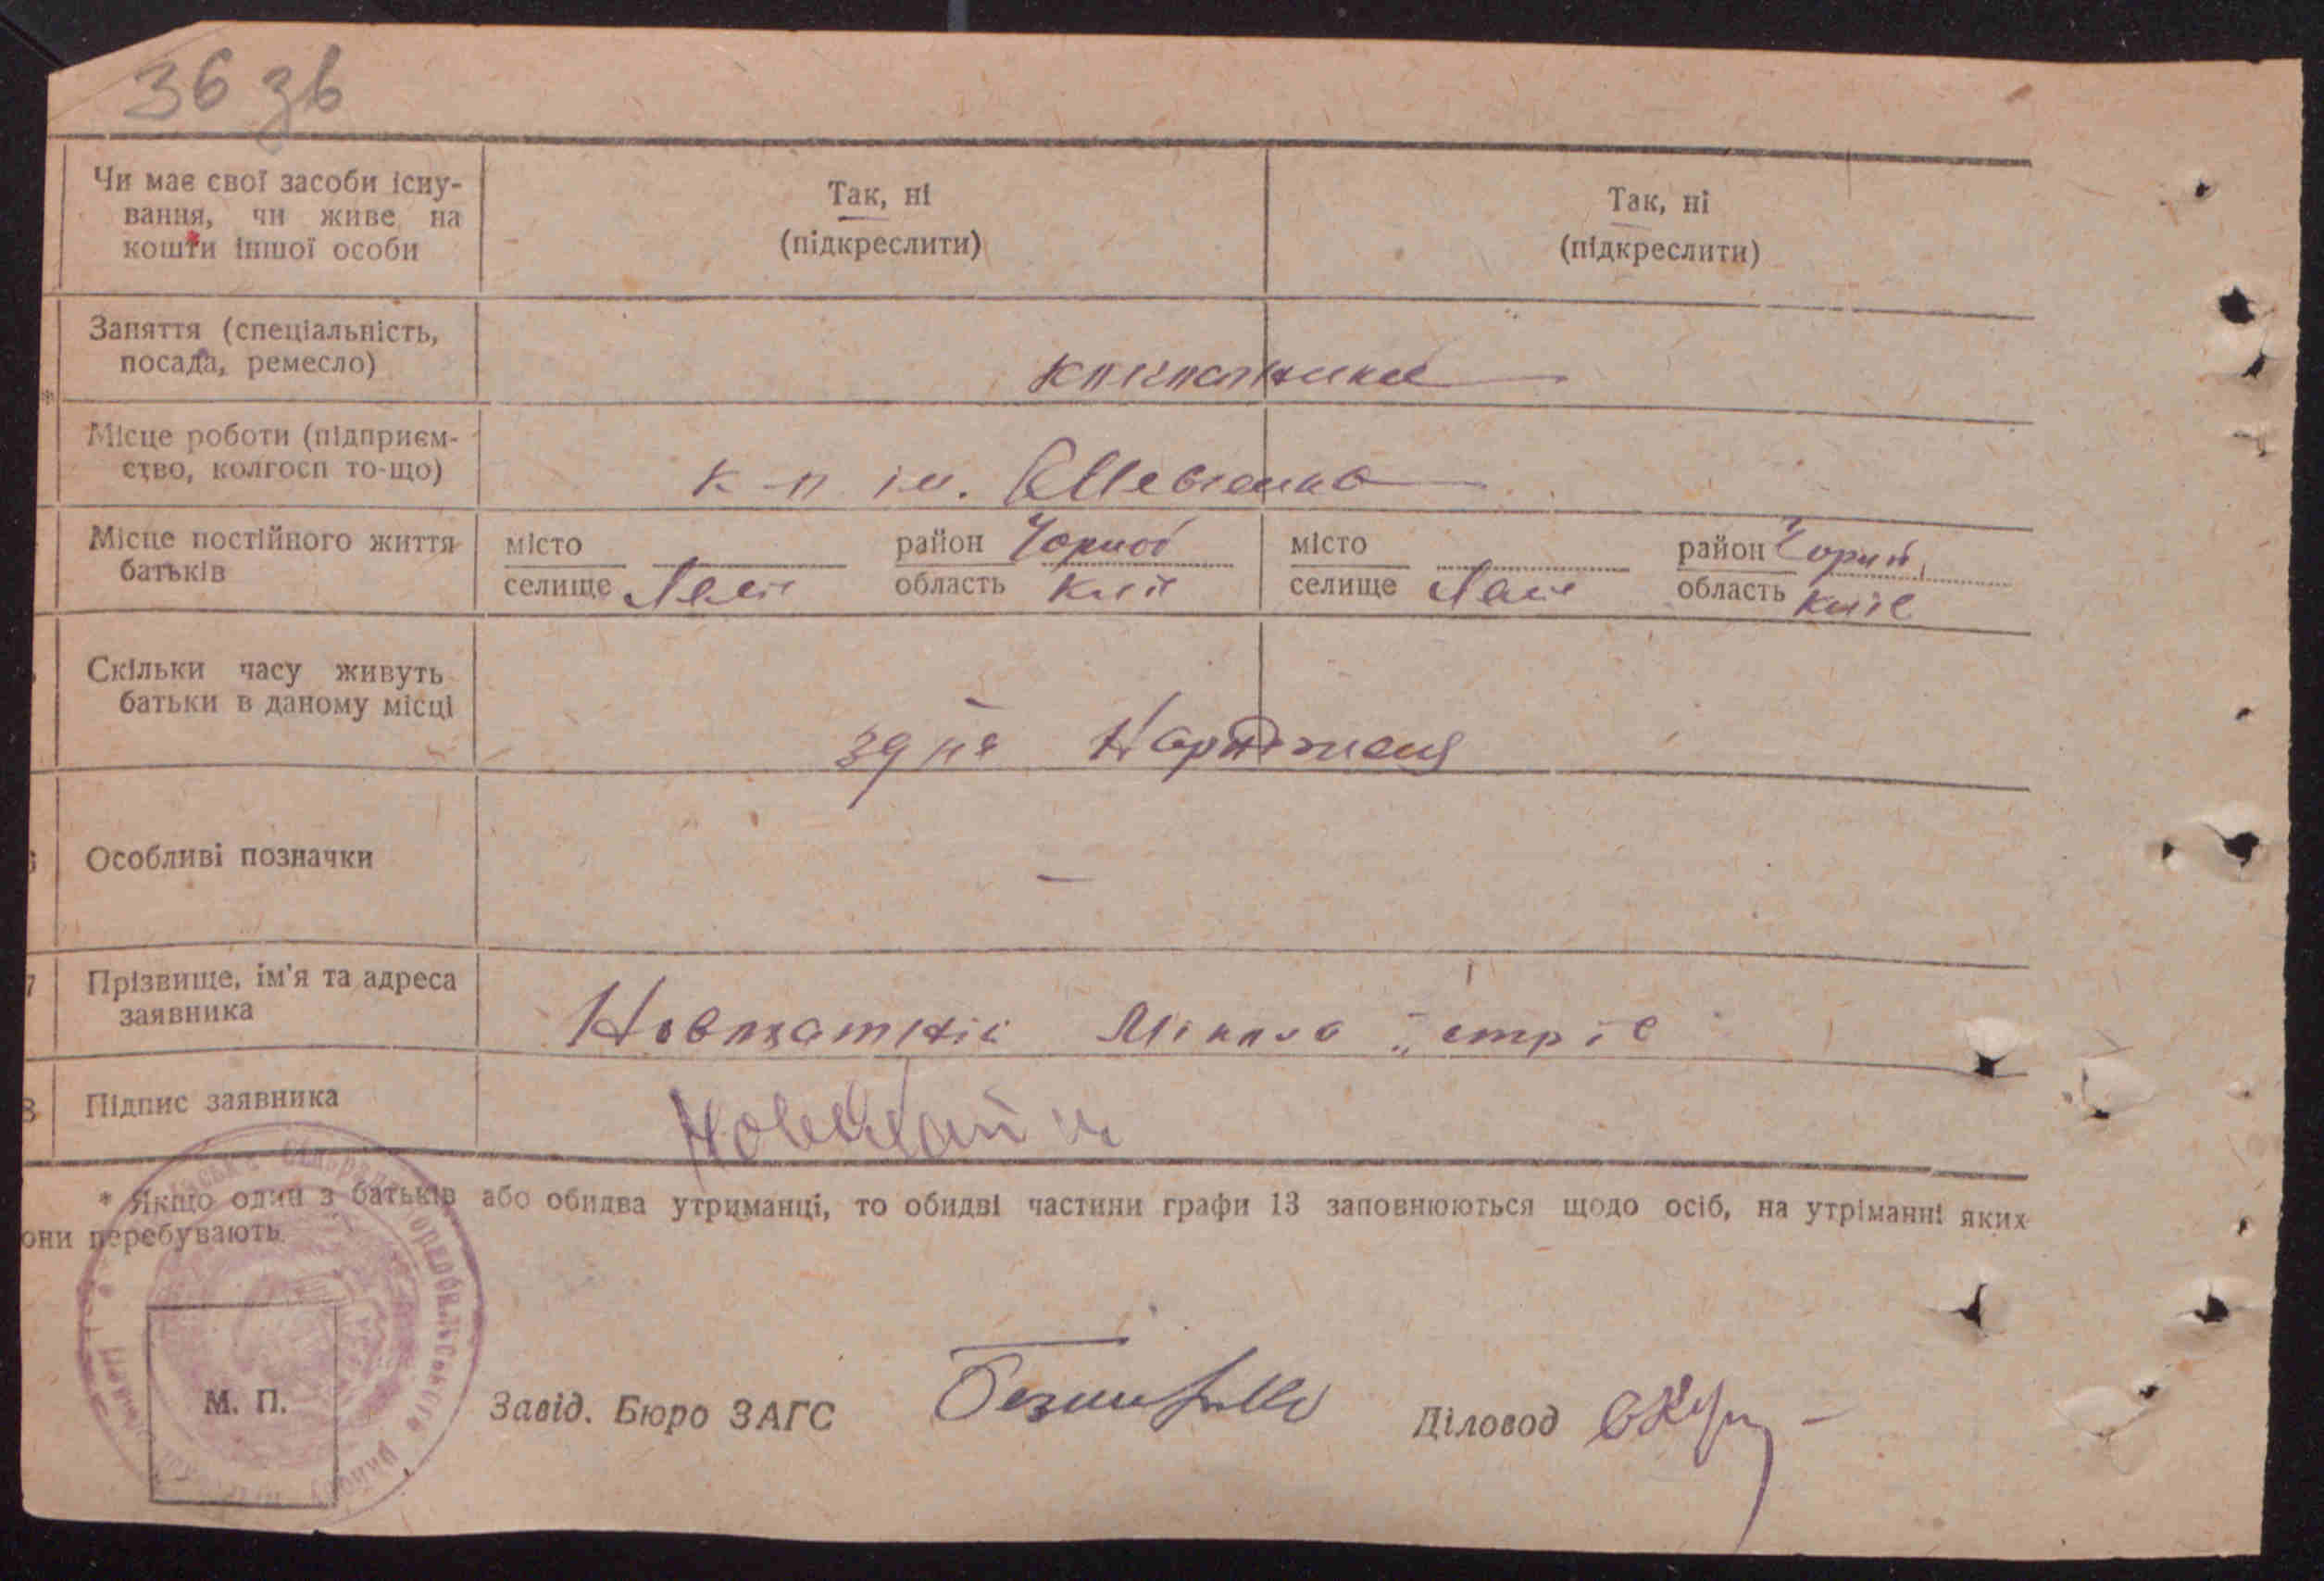 36 зв
Чи має свої засоби існу-
вання, чи живе на
кошти іншої особи
Так, ні
(підкреслити)
Так, ні
(підкреслити)
Заняття (спеціальність,
посада, ремесло)
Місце роботи (підприєм-
ство, колгосп то-що)
к-п ім. Шевченка
Місце постійного життя
батьків
місто
селище
район Чорноб
область Київ
місто
селище
район Чорноб
область Київ
Скільки часу живуть
батьки в даному місці
здня Народженя
Особливі позначки
-
7 Прізвище, ім'я та адреса
заявника
Микола
8 Підпис заявника
* Якщо один з батьків або обидва утриманці, то обидві частини графи 13 заповнюються щодо осіб, на утріманні яких
они перебувають
М. П.
Завід. Бюро ЗАГС
Діловод